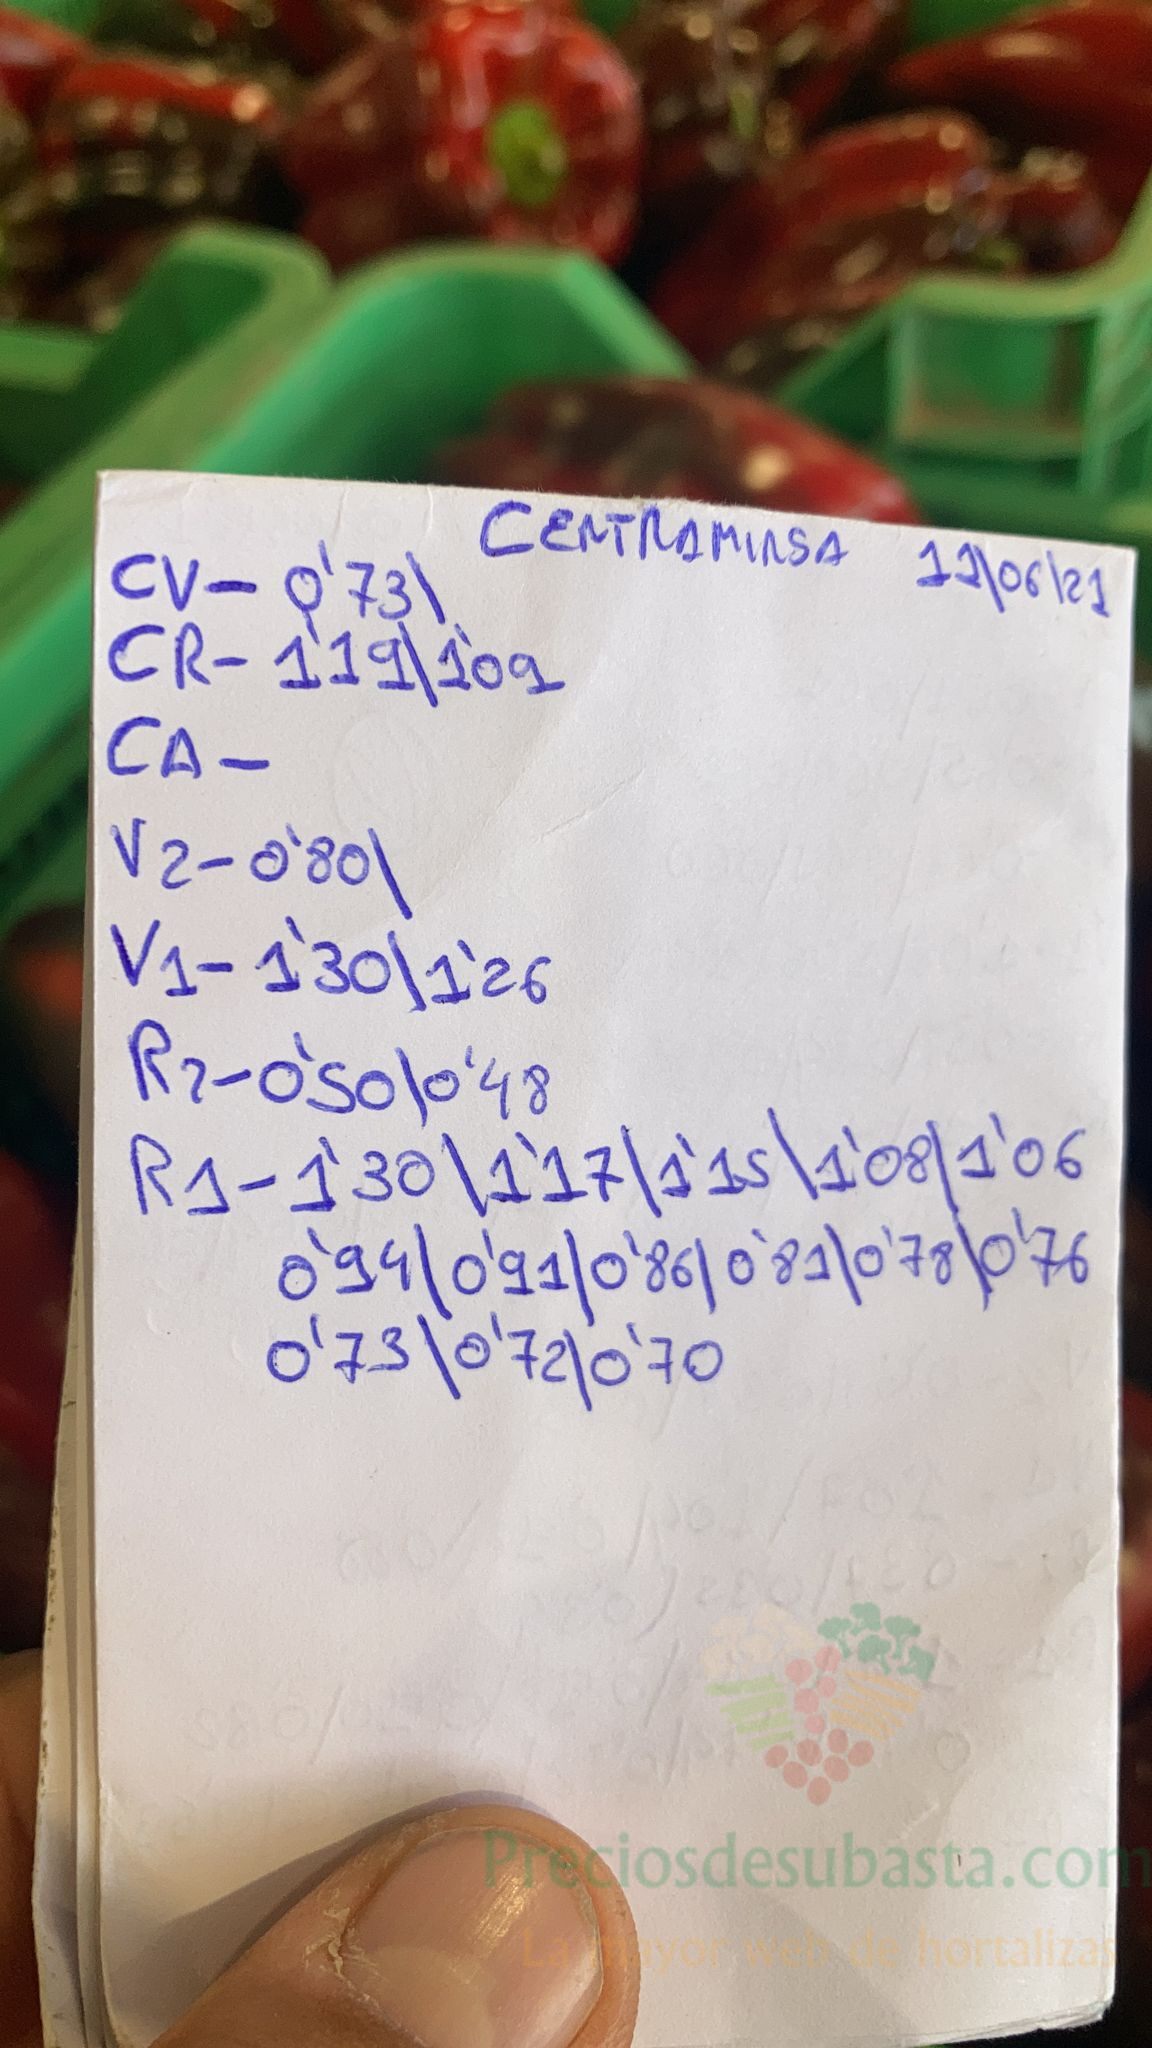 CENTRAMIRSA 11/06/21
CV- 0'73\
CR- 1'19\1'09
CA-
V2-0'80\
V1-1'30\1'26
R2-0'50\0'48
R1-1'30\1'17/1'15\1'08/1'06
0'94/0'91/0'86/0'81/0'78\0'76
0'73\0'72/0'70
Preciosdesubasta.com
La mayor web de hortalizas